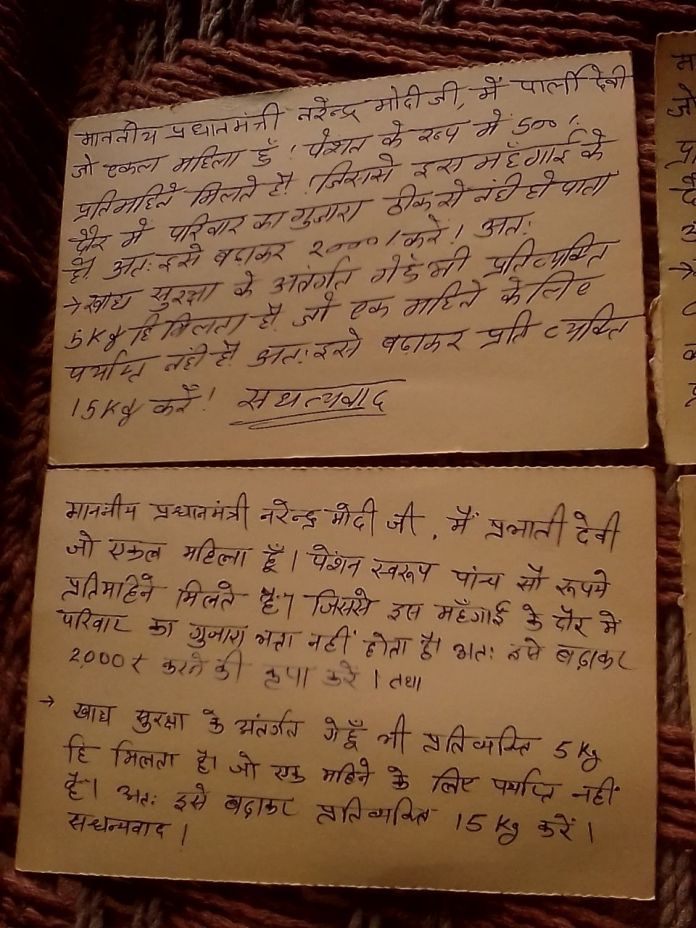 माननीय प्रधानमंत्री नरेन्द्र मोदी जी, मैं पार्ली देवी
जो एकल महिला हूँ। पेंशन के रूप में 500/.
प्रतिमहिने मिलते है। जिससे इस महँगाई के
दौर में परिवार का गुजारा ठीक से नंही हो पाता
है। अतः इसे बढाकर 2000/ करें। अतः
→ खाद्य सुरक्षा के अंतर्गत गेहूँ भी प्रतिव्यक्ति
5Kg हि मिलता है। जो एक महिने के लिए
पर्याप्त नंही है। अतः इसे बढाकर प्रति व्यक्ति
15Kg करें। सधन्यवाद
माननीय प्रधानमंत्री नरेन्द्र मोदी जी, मैं प्रभाती देवी
जो एकल महिला हूँ। पेंशन स्वरूप पांच सौ रूपये
प्रतिमहिने मिलते हैं। जिससे इस महँगाई के दौर में
परिवार का गुजारा भत्ता नहीं होता है। अतः इसे बढ़ाकर
2,000₹ करने की कृपा करें। तथा
→ खाद्य सुरक्षा के अंतर्गत गेहूँ भी प्रतिव्यक्ति 5 Kg
हि मिलता है। जो एक महिने के लिए पर्याप्त नहीं
है। अतः इसे बढ़ाकर प्रतिव्यक्ति 15 Kg करें।
सधन्यवाद।